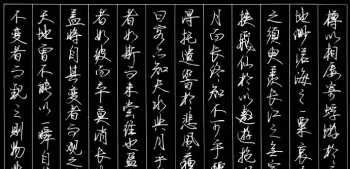 樽以相属寄蜉蝣於
地渺滄海之一粟哀
之須臾羨長江之無窮
挾飛仙以遨遊抱
月而長終知不可乎驟
得托遺響於悲風蘇
曰客亦知夫水與月乎
者如斯而未嘗往也盈
者如彼而卒莫消長
蓋將自其變者而觀之
天地曾不能以一瞬自
不變者而觀之則物與